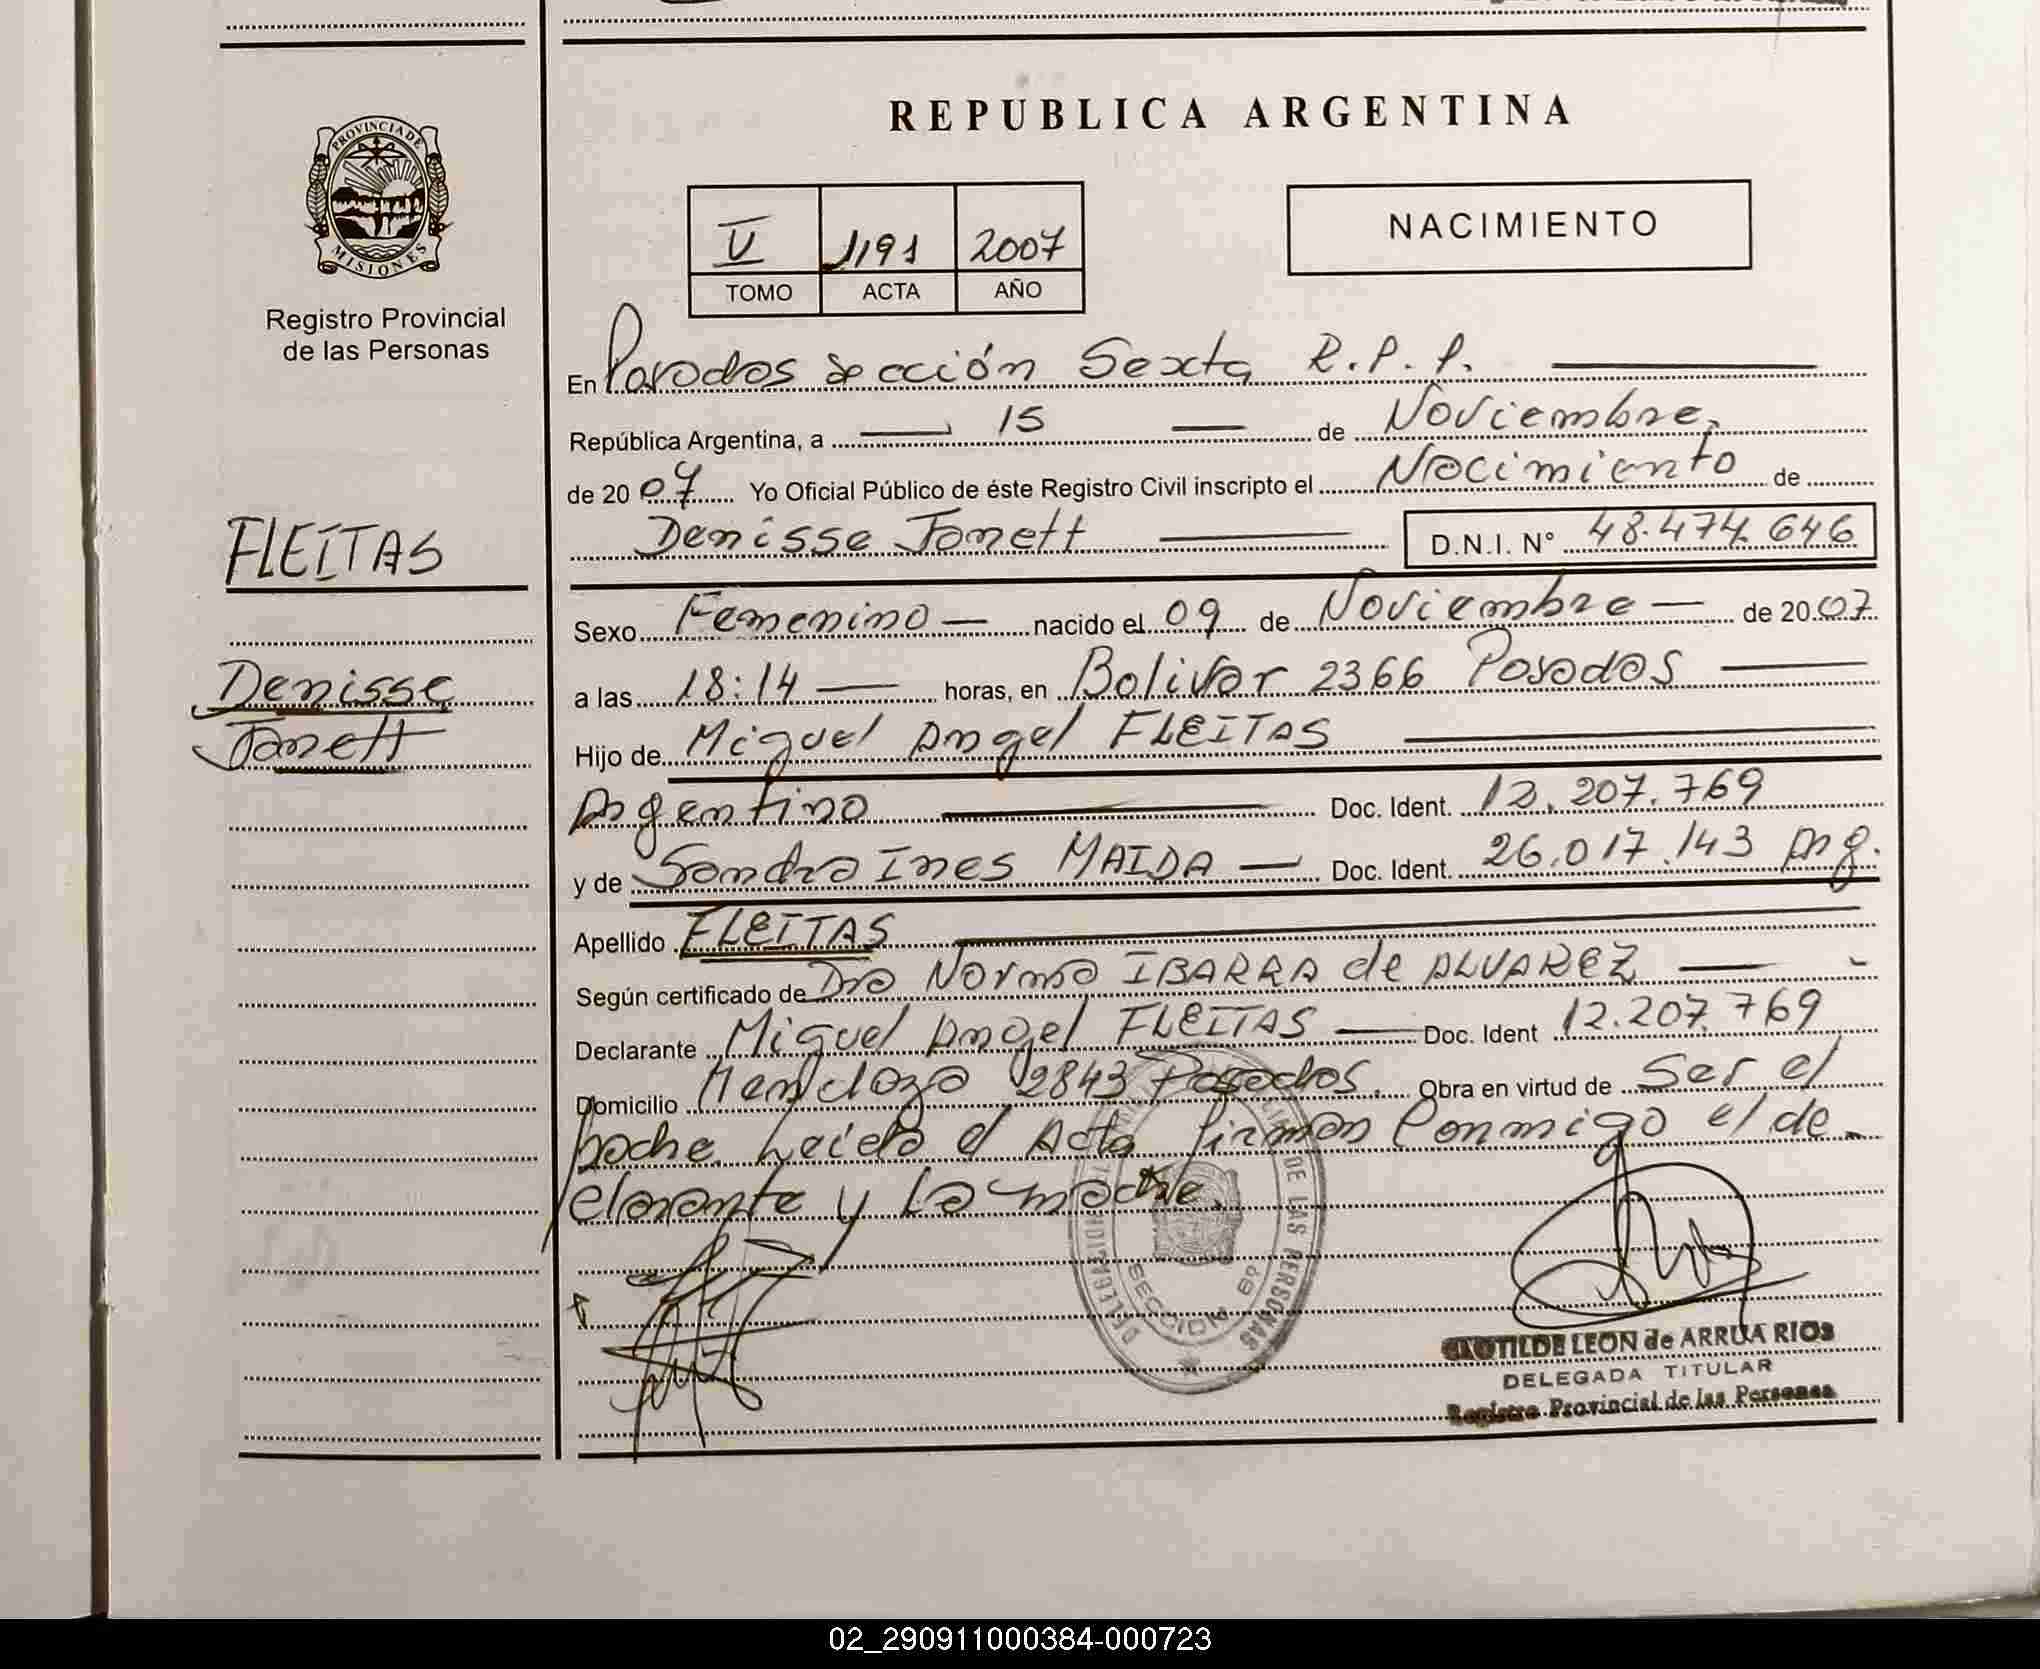 REPUBLICA ARGENTINA
PROVINCIA DE
MISIONES
Registro Provincial
de las Personas
V 1191 2007
TOMO ACTA AÑO
NACIMIENTO
En Posadas sección Sexta R.P.P.
República Argentina, a 15 de Noviembre
de 2007 Yo Oficial Público de éste Registro Civil inscripto el Nacimiento de
Denisse Janett D.N.I. N° 48.474.646
FLEITAS
Denisse
Janett
Sexo Femenino nacido el 09 de Noviembre de 2007
a las 18:14 horas, en Bolivar 2366 Posadas
Hijo de Miguel Angel FLEITAS
Argentino Doc. Ident. 12.207.769
y de Sandra Ines MAIDA Doc. Ident. 26.017.143 Arg.
Apellido FLEITAS
Según certificado de Dra Norma IBARRA de ALVAREZ
Declarante Miguel Angel FLEITAS Doc. Ident 12.207.769
Domicilio Mendoza 2843 Posadas. Obra en virtud de Ser el
padre. Leida el Acta firman Conmigo el de-
clarante y la madre.
DE LAS PERSONAS
SECCION 6º
CLOTILDE LEON de ARRUA RIOS
DELEGADA TITULAR
Registro Provincial de las Personas
02_290911000384-000723